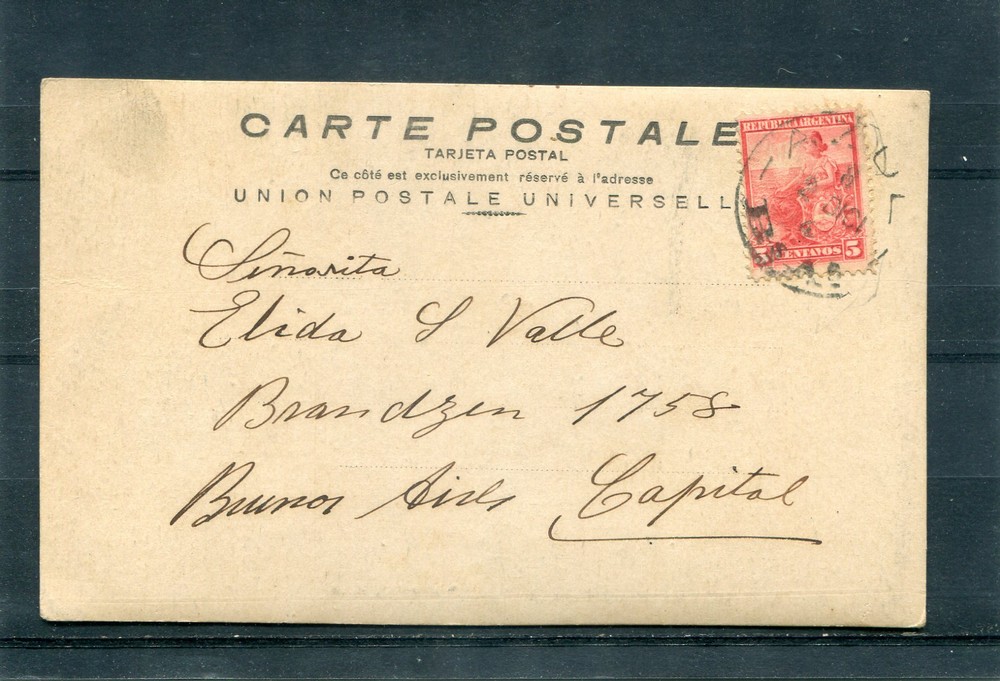 CARTE POSTALE
TARJETA POSTAL
Ce côté est exclusivement réservé à l'adresse
UNION POSTALE UNIVERSELL
REPUBLICA ARGENTINA
5 CENTAVOS 5
Señorita
Elida S Valle
Brandzen 1758
Buenos Aires Capital